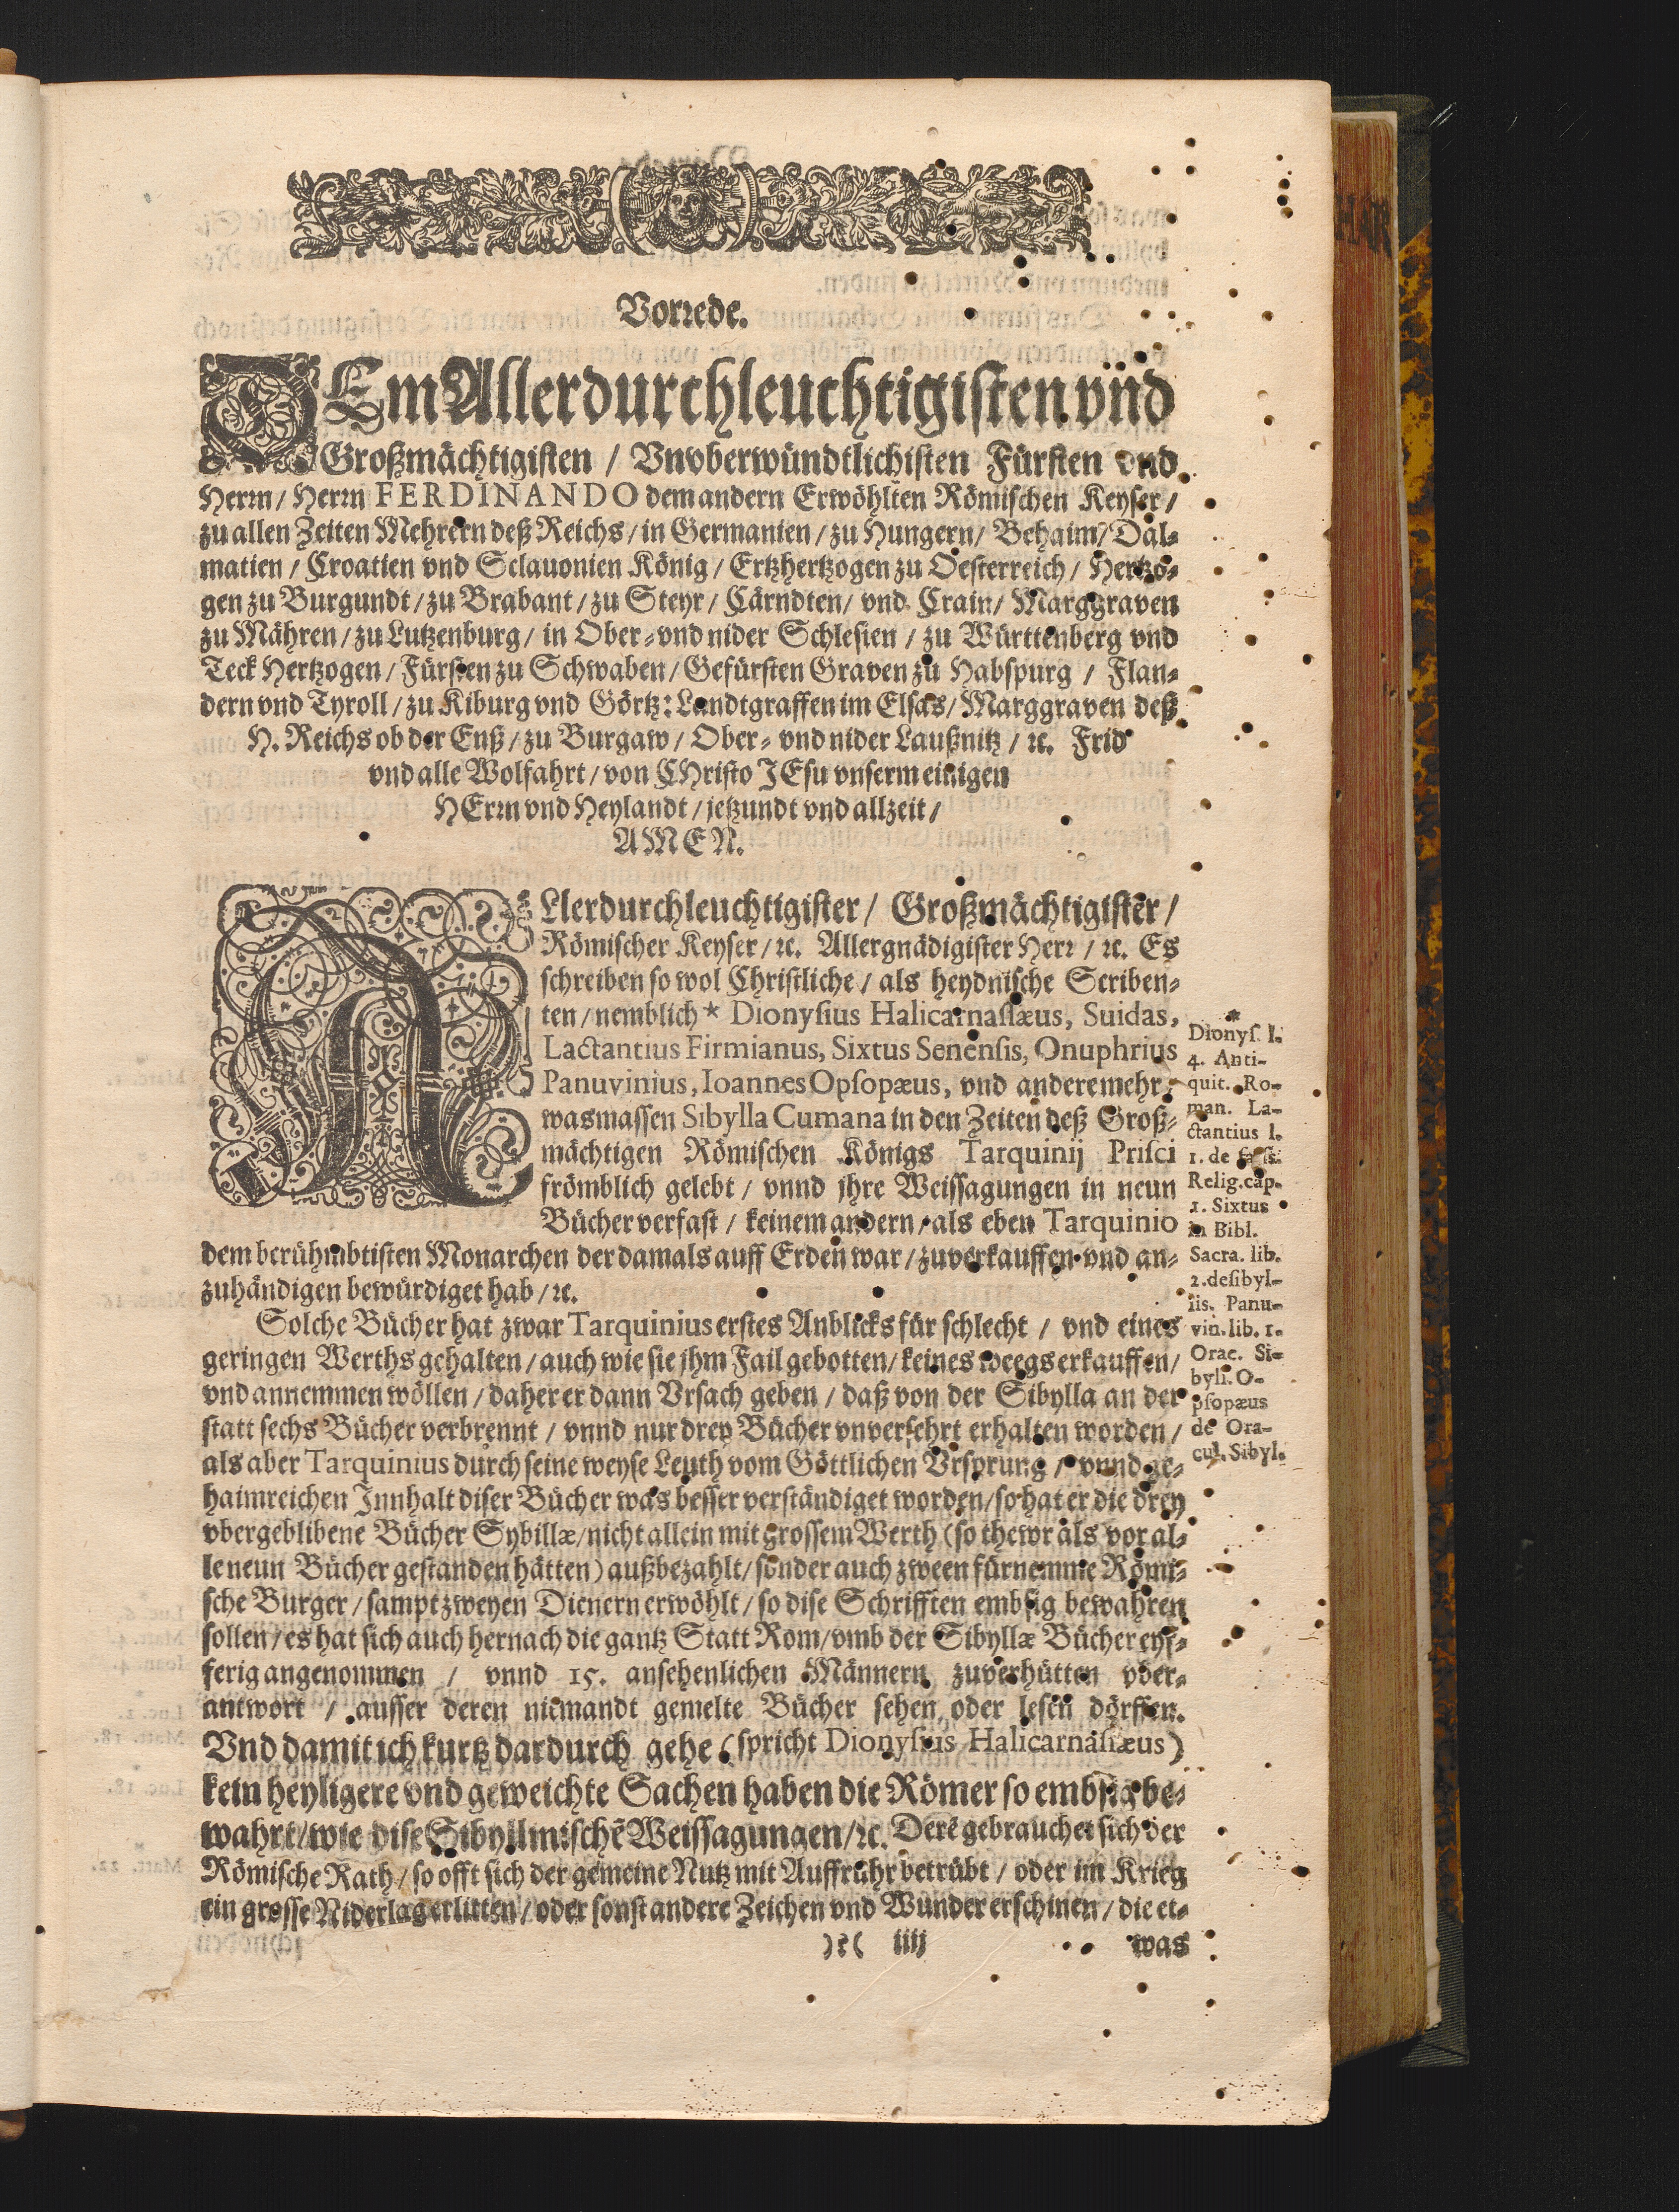 Vorrede.
DEm Allerdurchleuchtigisten vnd
Großmächtigisten / Vnvberwündtlichisten Fürsten vnd
Herrn / Herrn FERDINANDO dem andern Erwöhlten Römischen Keyser /
zu allen Zeiten Mehrern deß Reichs / in Germanien / zu Hungern / Behaim / Dal-
matien / Croatien vnd Sclauonien König / Ertzhertzogen zu Oesterreich / Hertzo-
gen zu Burgundt / zu Brabant / zu Steyr / Cärndten / vnd Crain / Marggraven
zu Mähren / zu Lutzenburg / in Ober- vnd nider Schlesien / zu Württenberg vnd
Teck Hertzogen / Fürsten zu Schwaben / Gefürsten Graven zu Habspurg / Flan-
dern vnd Tyroll / zu Kiburg vnd Görtz: Landtgraffen im Elsas / Marggraven deß
H. Reichs ob der Enß / zu Burgaw / Ober- vnd nider Laußnitz / ꝛc. Frid
vnd alle Wolfahrt / von CHristo JEsu vnserm einigen
HErrn vnd Heylandt / jetzundt vnd allzeit /
AMEN.
ALlerdurchleuchtigister / Großmächtigister /
Römischer Keyser / ꝛc. Allergnädigister Herr / ꝛc. Es
schreiben so wol Christliche / als heydnische Scriben-
ten / nemblich * Dionysius Halicarnassæus, Suidas,
Lactantius Firmianus, Sixtus Senensis, Onuphrius
Panuvinius, Ioannes Opsopæus, vnd andere mehr /
wasmassen Sibylla Cumana in den Zeiten deß Groß-
mächtigen Römischen Königs Tarquinij Prisci
frömblich gelebt / vnnd jhre Weissagungen in neun
Bücher verfast / keinem andern / als eben Tarquinio
dem berühmbtisten Monarchen der damals auff Erden war / zuverkauffen vnd an-
zuhändigen bewürdiget hab / ꝛc.
Solche Bücher hat zwar Tarquinius erstes Anblicks für schlecht / vnd eines
geringen Werths gehalten / auch wie sie jhm Fail gebotten / keines weegs erkauffen /
vnd annemmen wöllen / daher er dann Vrsach geben / daß von der Sibylla an der
statt sechs Bücher verbrennt / vnnd nur drey Bücher vnversehrt erhalten worden /
als aber Tarquinius durch seine weyse Leuth vom Göttlichen Vrsprung / vnnd ge-
haimreichen Jnnhalt diser Bücher was besser verständiget worden / so hat er die drey
vbergeblibene Bücher Sybillæ / nicht allein mit grossem Werth (so thewr als vor al-
le neun Bücher gestanden hätten) außbezahlt / sonder auch zween fürnemme Römi-
sche Burger / sampt zweyen Dienern erwöhlt / so dise Schrifften embsig bewahren
sollen / es hat sich auch hernach die gantz Statt Rom / vmb der Sibyllæ Bücher eyf-
ferig angenommen / vnnd 15. ansehenlichen Männern zuverhütten vber-
antwort / ausser deren niemandt gemelte Bücher sehen oder lesen dörffen.
Vnd damit ich kurtz dardurch gehe (spricht Dionysius Halicarnassæus)
kein heyligere vnd geweichte Sachen haben die Römer so embsig be-
wahrt / wie dise Sibyllinischē Weissagungen / ꝛc. Derē gebrauchet sich der
Römische Rath / so offt sich der gemeine Nutz mit Auffruhr betrübt / oder im Krieg
ein grosse Niderlag erlitten / oder sonst andere Zeichen vnd Wunder erschinen / die et-
)?( iiij was
*
Dionys. l.
4. Anti-
quit. Ro-
man. La-
ctantius l.
1. de fals.
Relig. cap.
1. Sixtus
in Bibl.
Sacra. lib.
2. de sibyl-
lis. Panu-
vin. lib. 1.
Orac. Si-
byll. O-
psopæus
de Ora-
cul. Sibyl.